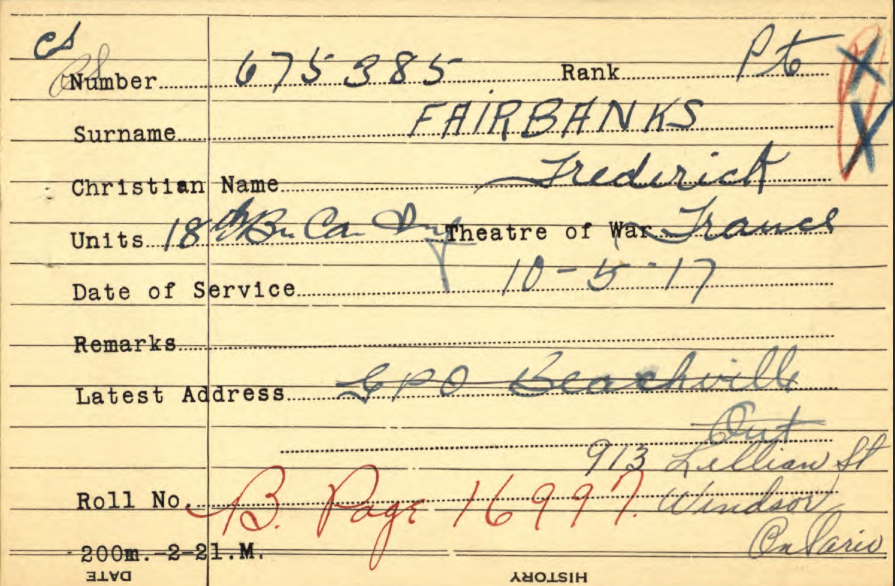 CS
Number 675385 Rank Pte
Surname FAIRBANKS
Christian Name Frederick
Units 18th Bn Can Inf Theatre of War France
Date of Service 10-5-17
Remarks
Latest Address GPO Beachville
Ont
913 Lillian St
Roll No. B. Page 16997. Windsor
Ontario
200m.-2-21.M.
DATE HISTORY